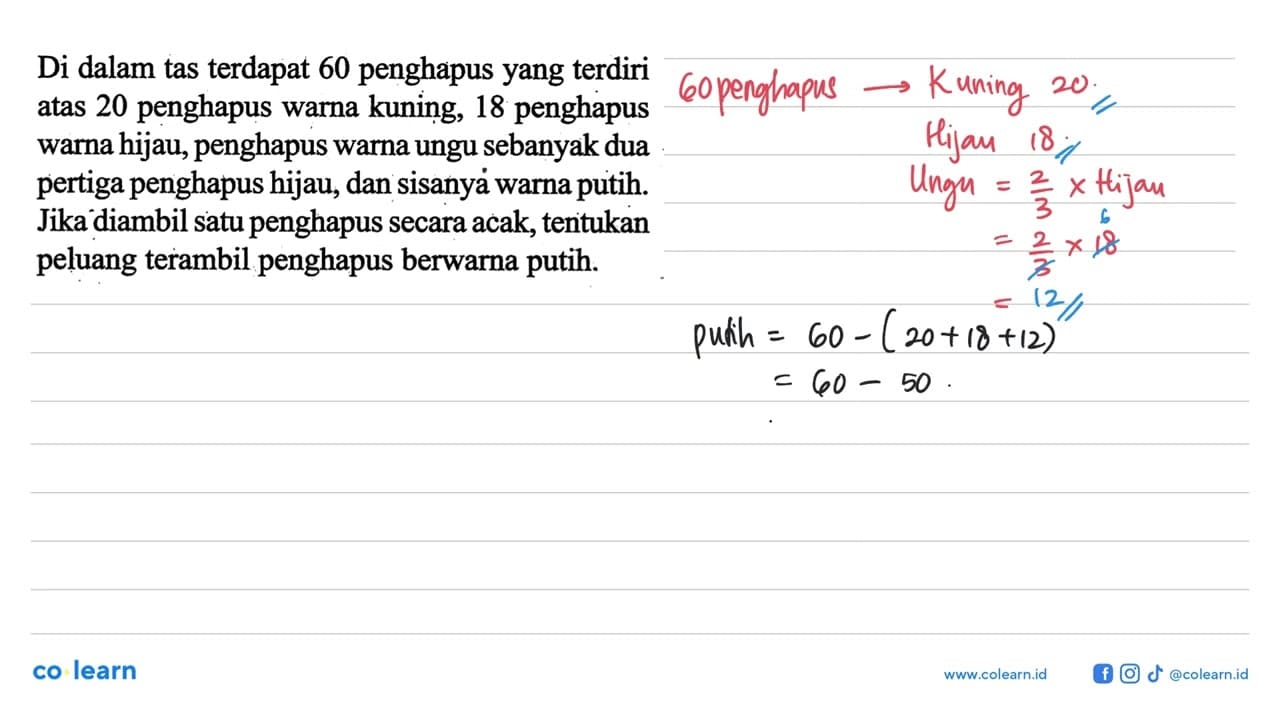 Di dalam tas terdapat 60 penghapus yang terdiri
atas 20 penghapus warna kuning, 18 penghapus
warna hijau, penghapus warna ungu sebanyak dua
pertiga penghapus hijau, dan sisanya warna putih.
Jika diambil satu penghapus secara acak, tentukan
peluang terambil penghapus berwarna putih.
60 penghapus → Kuning 20
Hijau 18
Ungu = 2/3 × Hijau
= 2/3 × 18 6
= 12
putih = 60 - (20 + 18 + 12)
= 60 - 50
co learn
www.colearn.id @colearn.id